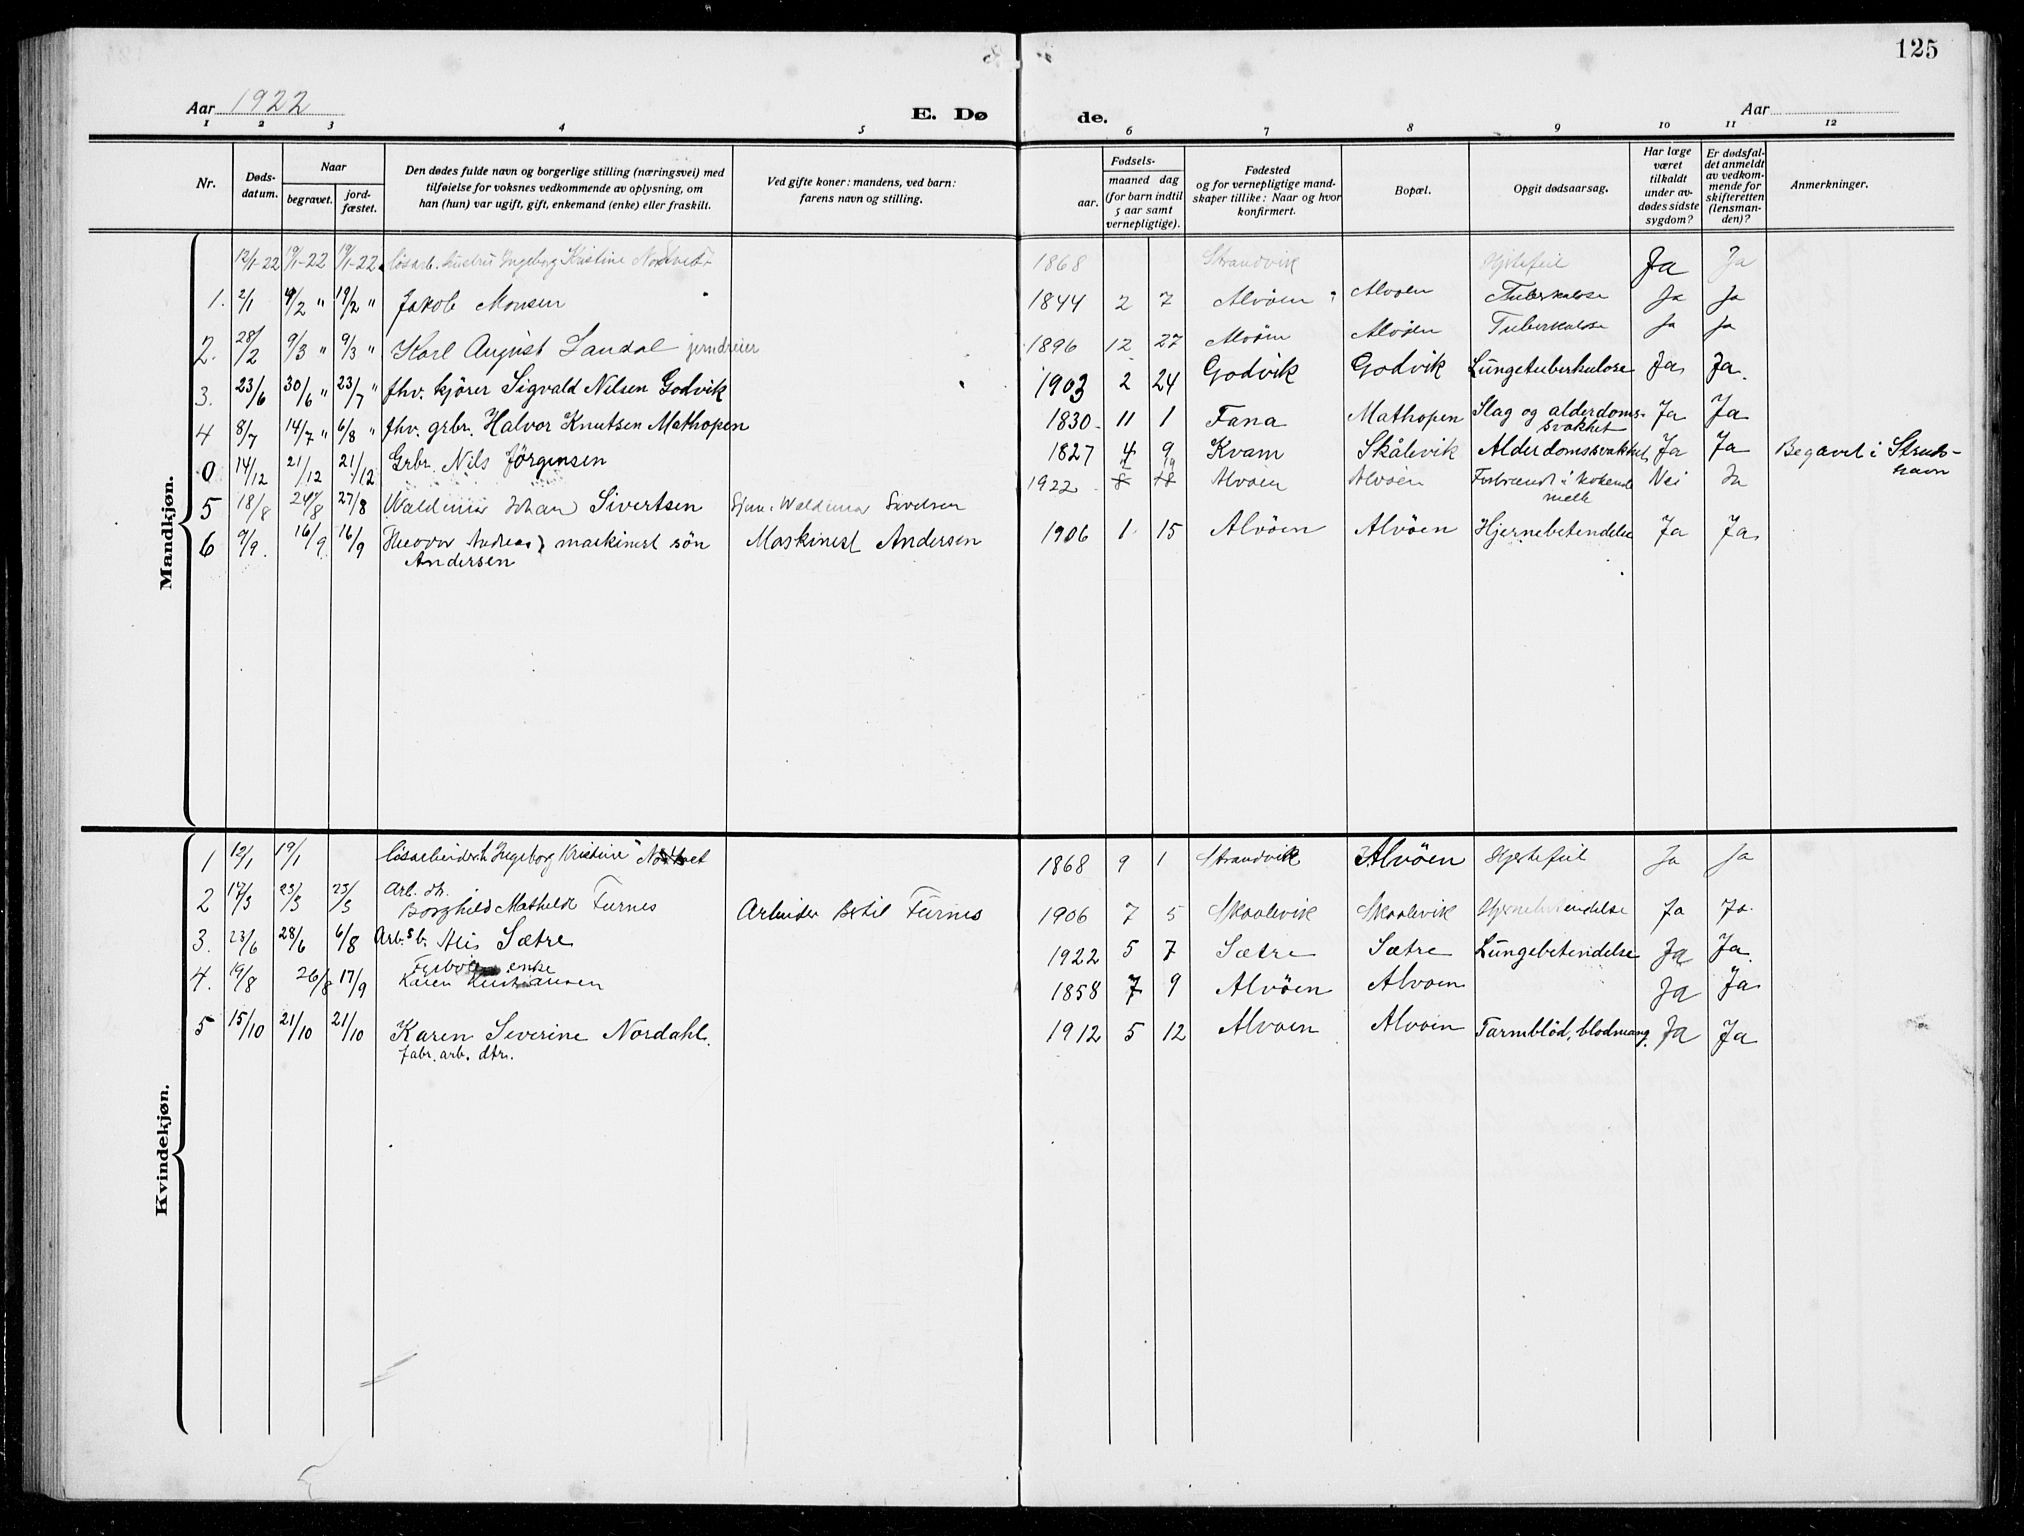 125
Aar 1922
E. Dø de.
Aar
1 2 3 4 5 6 7 8 9 10 11 12
Nr.
Døds-datum.
Naar
begravet.
jord-fæstet.
Den dødes fulde navn og borgerlige stilling (næringsvei) med
tilføielse for voksnes vedkommende av oplysning, om
han (hun) var ugift, gift, enkemand (enke) eller fraskilt.
Ved gifte koner: mandens, ved barn:
farens navn og stilling.
Fødsels-
aar.
maaned dag
(for barn indtil
5 aar samt
vernepligtige).
Fødested
og for vernepligtige mand-
skaper tillike: Naar og hvor
konfirmert.
Bopæl.
Opgit dødsaarsag.
Har læge
været
tilkaldt
under av-
dødes sidste
sygdom?
Er dødsfal-
det anmeldt
av vedkom-
mende for
skifteretten
(lensman-
den)?
Anmerkninger.
Mandkjøn.
12/1-22 19/1-22 19/1-22 løsarb. hustru Ingeborg Kristine Nordtvet 1868 Strandvik Hjertefeil Ja Ja
1. 2/1 9/2 " 19/2 " Jakob Monsen 1844 2 7 Alvöen Alvöen Tuberkulose Ja Ja
2. 28/2 9/3 " 9/3 " Karl August Landal jerndreier 1896 12 27 Alvöen Alvöen Tuberkulose Ja Ja
3. 23/6 30/6 " 23/7 " fhv. kjörer Sigvald Nilsen Godvik 1903 2 24 Godvik Godvik Lungetuberkulose Ja Ja.
4 8/7 14/7 " 6/8 " fhv. grbr. Halvor Knutsen Mathopen 1830 11 1 Fana Mathopen Slag og alderdoms-
svakhet Ja Ja
0 14/12 21/12 21/12 Grbr. Nils Jörgensen 1827 4 9 Kvam Skålevik Alderdomssvakhet Ja Ja Begavet i
havn
5 18/8 24/8 27/8 Waldemar Johan Sivertsen Waldemar Sivertsen 1922 Alvöen Alvöen Forbrændt i kokende
melk Nei Ja
6 9/9. 16/9. 16/9 Andreas) maskinist sön Maskinist Andersen 1906 1 15 Alvöen Alvöen Hjernebetendelse Ja Ja
Andersen
Kvindekjøn.
1 12/1 19/1 Ingeborg Kristine Nordtvet 1868 9 1 Strandvik Alvöen Hjertefeil Ja Ja
2 17/3 23/3 23/3 Arb. dtr.
Borghild Mathilde Furnes Arbeider Bertil Furnes 1906 7 5 Skaalevik Skaalevik Hjernebetendelse Ja Ja
3. 23/6 28/6 6/8 Arb.s b. Alis Sætre 1922 5 7 Sætre Sætre Lungebetendelse Ja Ja.
4. 19/8 26/8 17/9 enke
Karen Kristiansen 1858 7 9 Alvöen Alvoen Ja Ja
5 15/10 21/10 21/10 Karen Severine Nordahl. 1912 5 12 Alvoen Alvoen Tarmblöd, blodmang. Ja Ja
fabr. arb. dtr.